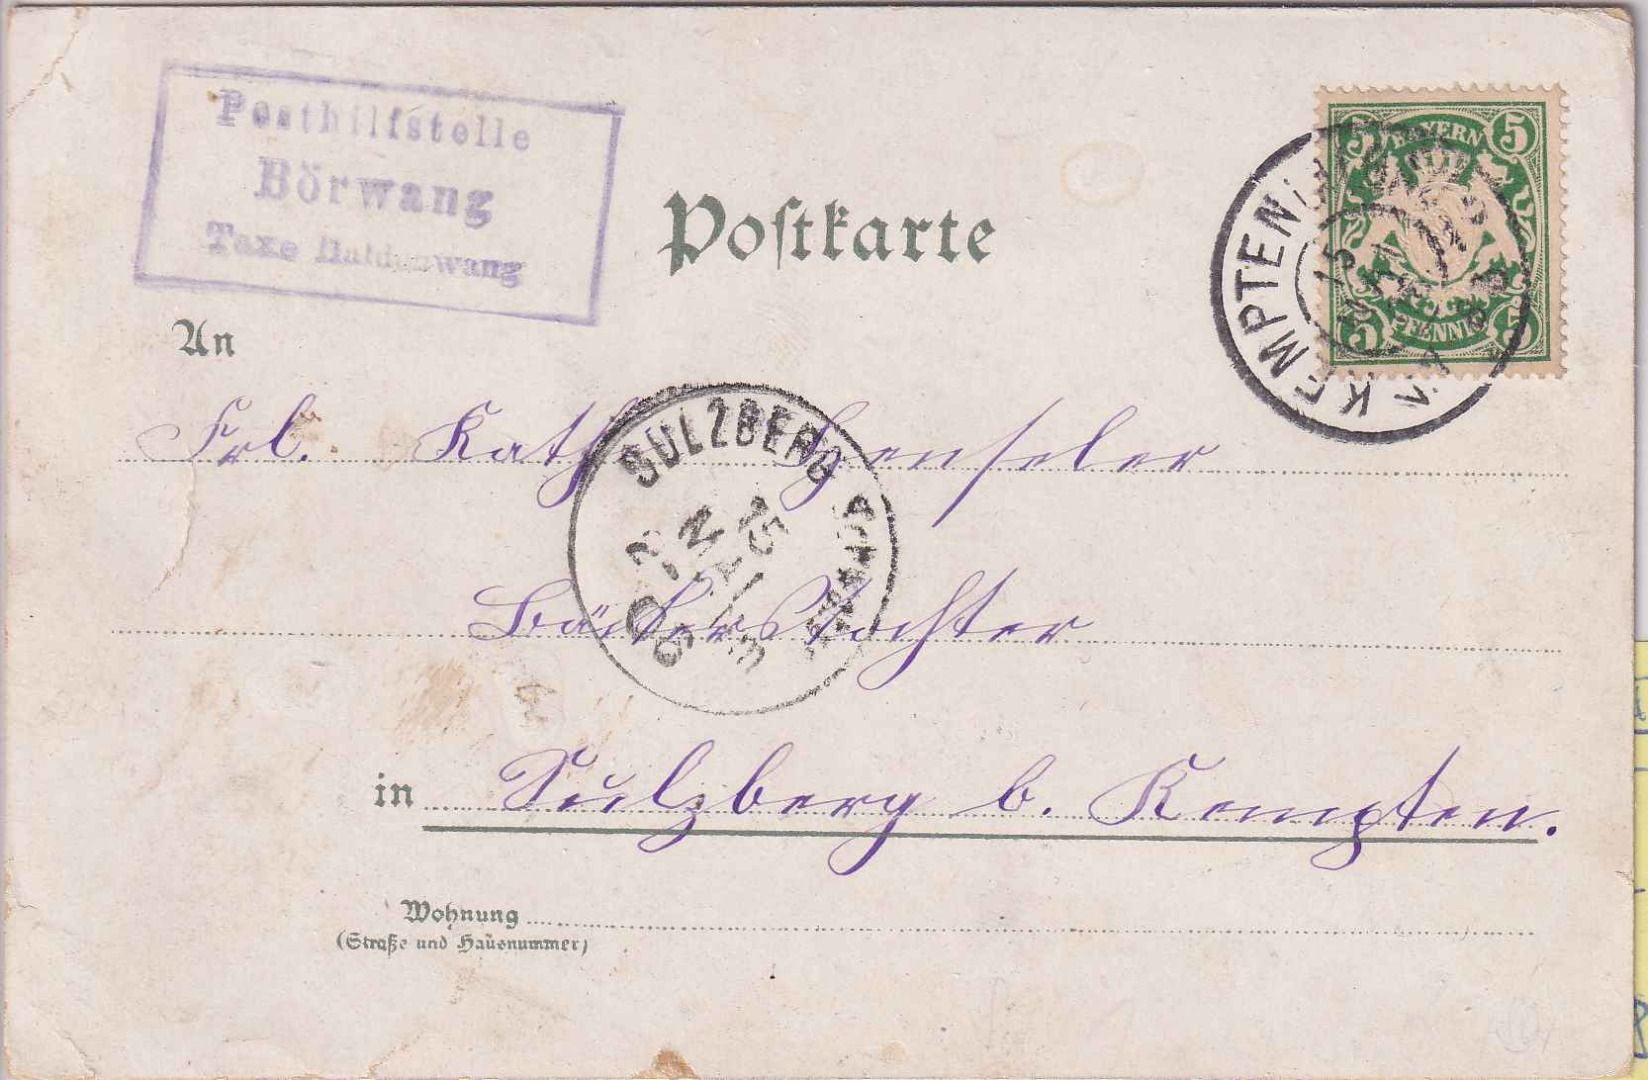 Posthilfstelle
Börwang
Taxe Haldenwang
Postkarte
BAYERN
5 5
PFENNIG
5 5
KEMPTEN
15
An
Frl. Kath Henseler
SULZBERG
15
MAI
Bäckerstochter
in Sulzberg b. Kempten.
Wohnung
(Straße und Hausnummer)